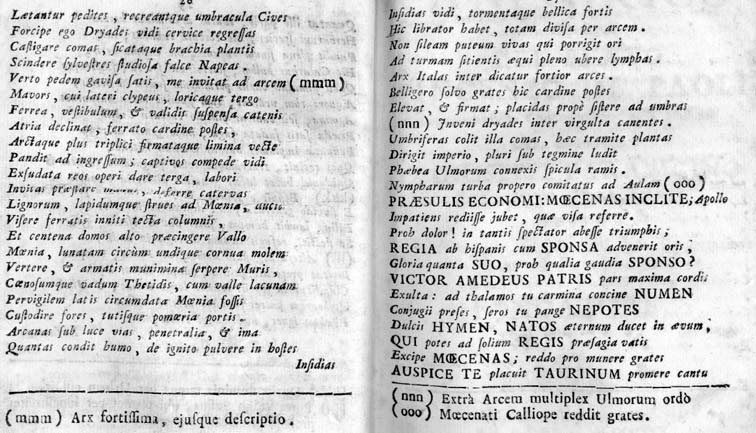 28
Lætantur pedites, recreantque umbracula Cives
Forcipe ego Dryades vidi cervice regressas
Castigare comas, sicataque brachia plantis
Scindere sylvestres studiosa falce Napeas.
Verto pedem gavisa satis, me invitat ad arcem (mmm)
Mavors, cui lateri clypeus, loricaque tergo
Ferrea, vestibulum, & validis suspensa catenis
Atria declinat, ferrato cardine postes,
Arctaque plus triplici firmataque limina vecte
Pandit ad ingressum; captivos compede vidi
Exsudata reos operi dare terga, labori
Invisas præstare deferre catervas
Lignorum, lapidumque strues ad Mœnia, aucis
Visere ferratis inniti tecta columnis,
Et centena domos alto præcingere Vallo
Mœnia, lunatam circùm undique cornua molem
Vertere, & armatis munimina serpere Muris,
Cœnosumque vadum Thetidis, cum valle lacunam
Pervigilem latis circumdata Mœnia fossis
Custodire fores, tutisque pomœria portis.
Arcanas sub luce vias, penetralia, & ima
Quantas condit humo, de ignito pulvere in hostes
Insidias
(mmm) Arx fortissima, ejusque descriptio.
Insidias vidi, tormentaque bellica fortis
Hic librator habet, totam divisa per arcem.
Non sileam puteum vivas qui porrigit ori
Ad turmam sitientis æqui pleno ubere lymphas.
Arx Italas inter dicatur fortior arces.
Belligero solvo grates hic cardine postes
Elevat, & firmat; placidas propè sistere ad umbras
(nnn) Inveni dryades inter virgulta canentes.
Umbriferas colit illa comas, hæc tramite plantas
Dirigit imperio, pluri sub tegmine ludit
Phæbea Ulmorum connexis spicula ramis.
Nympharum turba propero comitatus ad Aulam (ooo)
PRÆSULIS ECONOMI: MŒCENAS INCLITE; Apollo
Impatiens rediisse jubet, quæ visa referre.
Proh dolor! in tantis spectator abesse triumphis;
REGIA ab hispanis cum SPONSA advenerit oris;
Gloria quanta SUO, proh qualia gaudia SPONSO?
VICTOR AMEDEUS PATRIS pars maxima cordis
Exulta: ad thalamos tu carmina concine NUMEN
Conjugii preses, seros tu pange NEPOTES
Dulcis HYMEN, NATOS æternum ducet in ævum,
QUI potes ad solium REGIS præsagia vatis
Excipe MŒCENAS; reddo pro munere grates
AUSPICE TE placuit TAURINUM promere cantu
(nnn) Extrà Arcem multiplex Ulmorum ordo
(ooo) Mœcenati Calliope reddit grates.